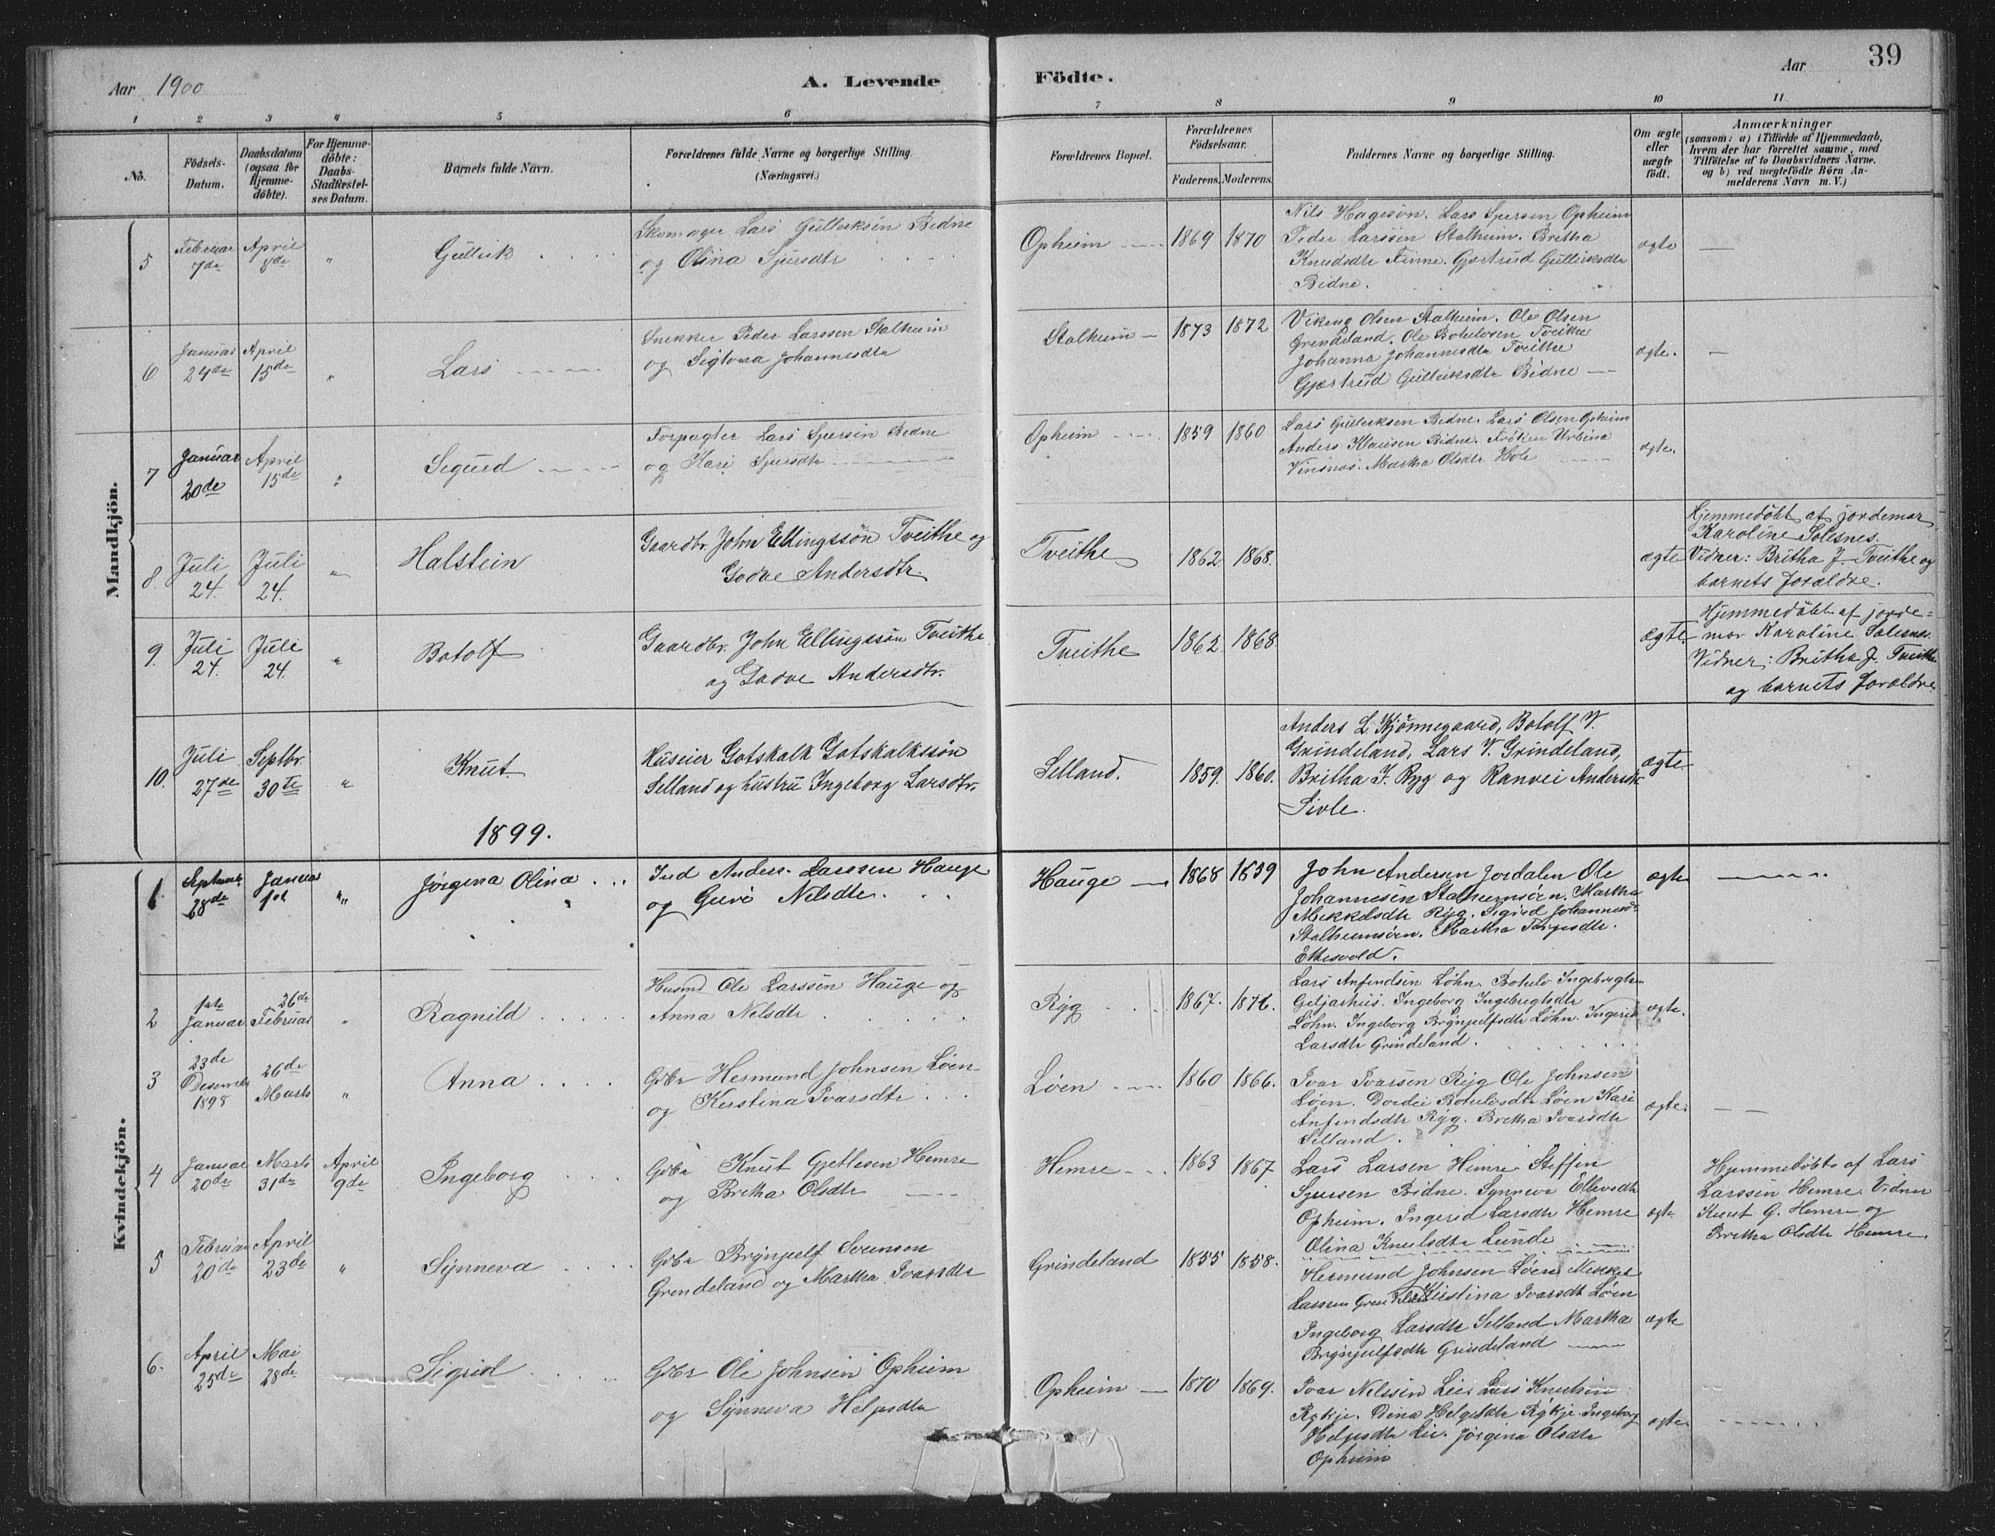 Aar 1900
A. Levende
Födte.
Aar
39
1 2 3 4 5 6 7 8 9 10 11
No.
Födsels-
Datum.
Daabsdatum
(ogsaa for
Hjemme-
döbte).
For Hjemme-
döbte:
Daabs-
Stadfæstel-
ses Datum.
Barnets fulde Navn.
Forældrenes fulde Navne og borgerlige Stilling.
(Næringsvei.)
Forældrenes Bopæl.
Forældrenes
Födselsaar.
Faderens. Moderens.
Faddernes Navne og borgerlige Stilling.
Om ægte
eller
uægte
födt.
Anmærkninger
(saasom: a) i Tilfælde af Hjemmedaab,
hvem der har forrettet samme, med
Tilföielse af to Daabsvidners Navne.
og b) ved uægtefödte Börn An-
melderens Navn m. V.)
Mandkjön.
5 Februar 7de April 8de " Gullvik
Skomager Lars Gulleiksen Bidne
og Olina Sjursdtr
Opheim 1869 1870
Nils Hagesøn. Lars Sjursen Opheim
Peder Larssen Stalheim. Britha
Knudsdtr Finne. Gjertrud Gulleiksdtr
Bidne.
ægte —
6 Januar 24de April 15de " Lars
Snekker Peder Larssen Stalheim
og Sigtona Johannesdtr
Stalheim 1873 1872
Viking Olsen Stalheim. Ole Olsen
Grindeland. Ole Botelvsen Tveithe
Johanna Johannesdtr Tveithe
Gjertrud Gulleiksdtr Bidne —
ægte. —
7 Januar 20de April 15de " Sigurd
Forpagter Lars Sjursen Bidne
og Kari Sjursdtr
Opheim 1859 1860
Lars Gulleiksen Bidne. Lars Olsen Opheim
Anders Klausen Bidne. Frøken Urbina
Vinsnes. Martha Olsdtr Hole
ægte.
8. Juli 24. Juli 24. " Halstein
Gaardbr. John Ellingssøn Tveithe og
Godve Andersdtr.
Tveithe 1862 1868.
ægte
Hjemmedøbt af jordemor
Karoline Solesnes.
Vidner: Britha J. Tveithe og
barnets forældre.
9. Juli 24. Juli 24. " Botolf
Gaardbr. John Ellingssøn Tveithe
og Godve Andersdtr.
Tveithe 1862. 1868
ægte
Hjemmedøbt af jorde-
mor Karoline Solesnes.
Vidner: Britha J. Tveithe
og barnets forældre
10. Juli 27de Septbr. 30te " Knut
Huseier Gotskalk Gotskalkssøn
Selland og hustru Ingeborg Larsdtr.
Selland. 1859. 1860.
Anders L. Kjønnegaard, Botolf V.
Grindeland, Lars V. Grindeland,
Britha I. Ryg og Ranvei Andersdtr
Sivle.
ægte
1899.
Kvindekjön.
1. Septemb. 28de Januar 1ste " Jørgena Olina
Ind Anders Larssen Hauge
og Guro Nilsdtr.
Hauge 1868 1859
John Andersen Jordalen Ole
Johannesen Stalheimsøen. Martha
Mikkelsdtr Ryg. Sigrid Johannesdtr
Stalheimsøen. Martha
ægte
2 1ste Januar 26de Februar " Ragnild
Husmd Ole Larssen Hauge og
Anna Nilsdtr
Ryg 1867. 1876.
Lars Anfindsen Løhn Botelv Ingebrigtsen
Geljarhus. Ingeborg Ingebrigtsdtr
Løhn. Ingeborg Brynjulfsdtr Løhn. Ingerid
Larsdtr Grindeland.
ægte.
3 23de Desemb. 1898 26de Marts " Anna
Gdbr Hermund Johnsen Løen
og Kirstina Ivarsdtr
Løen 1860 1866.
Ivar Ivarsen Ryg Ole Johnsen
Løen. Dordei Botelvsdtr Løen Kari
Anfindsdtr Ryg. Bretha Ivarsdtr
Selland.
ægte. —
4 Januar 20de Marts 31de April 9de Ingeborg
Gdbr Knut Gjetlesen Hemre
og Bretha Olsdtr
Hemre 1863 1867
Lars Larsen Hemre Steffin
Sjursen Bidne. Synneva Ellevsdtr
Opheim. Ingerid Larsdtr Hemre
Olina Knutsdtr Lunde
ægte
Hjemmedøbt af Lars
Larssen Hemre. Vidner
Knut G. Hemre og
Bretha Olsdtr Hemre.
5 Februar 20de April 23de " Synneva
Gdbr Brynjulf Svensen
Grendeland og Martha Ivarsdtr
Grindeland 1855 1858.
Hermund Johnsen Løen Mikkel
Lassen Grindeland Kirstina Ivarsdtr Løen
Ingeborg Larsdtr Selland Martha
Brynjulfsdtr Grindeland
ægte
6. April 25de Mai 28de Sigrid
Gdbr Ole Johnsen Opheim
og Synneva Helgesdtr
Opheim 1870 1869.
Ivar Nilssen Lie. Lars Knutsen
Rykje. Dina Helgesdtr Rykje. Ingeborg
Helgesdtr Lie. Jørgena Olsdtr
Opheim
ægte